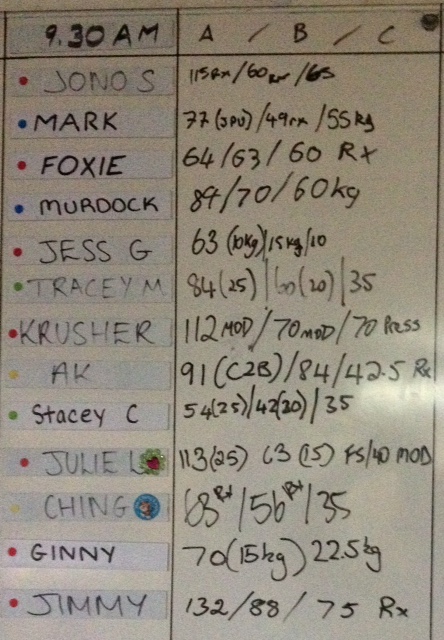 9.30 AM A / B / C
JONO S 115Rx/60Rx/65
MARK 77 (JPU) /49rx /55kg
FOXIE 64/63/60 Rx
MURDOCK 84/70/60kg
JESS G 63 (10kg)|15kg/10
TRACEY M 84(25)|60(20)|35
KRUSHER 112 MOD/70 MOD/70 Press
AK 91(C2B)/84/42.5 Rx
Stacey C 54(25)/42(20)/35
JULIE L 113(25) 63 (15) FS/40 MOD
CHING 68Rx/56Rx/35
GINNY 70(15kg) 22.5kg
JIMMY 132/88/75 Rx